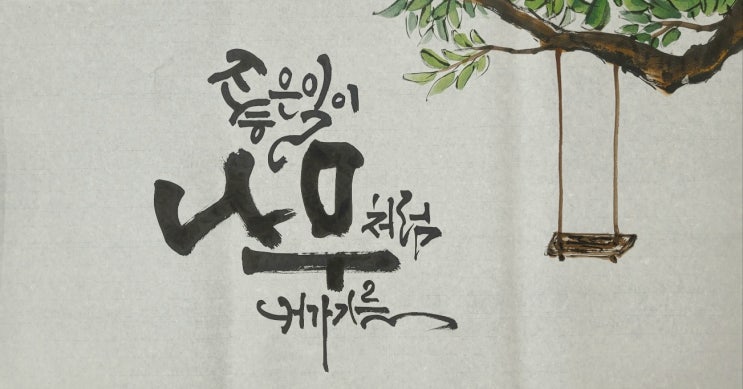 좋은일이
나무처럼
커가기를